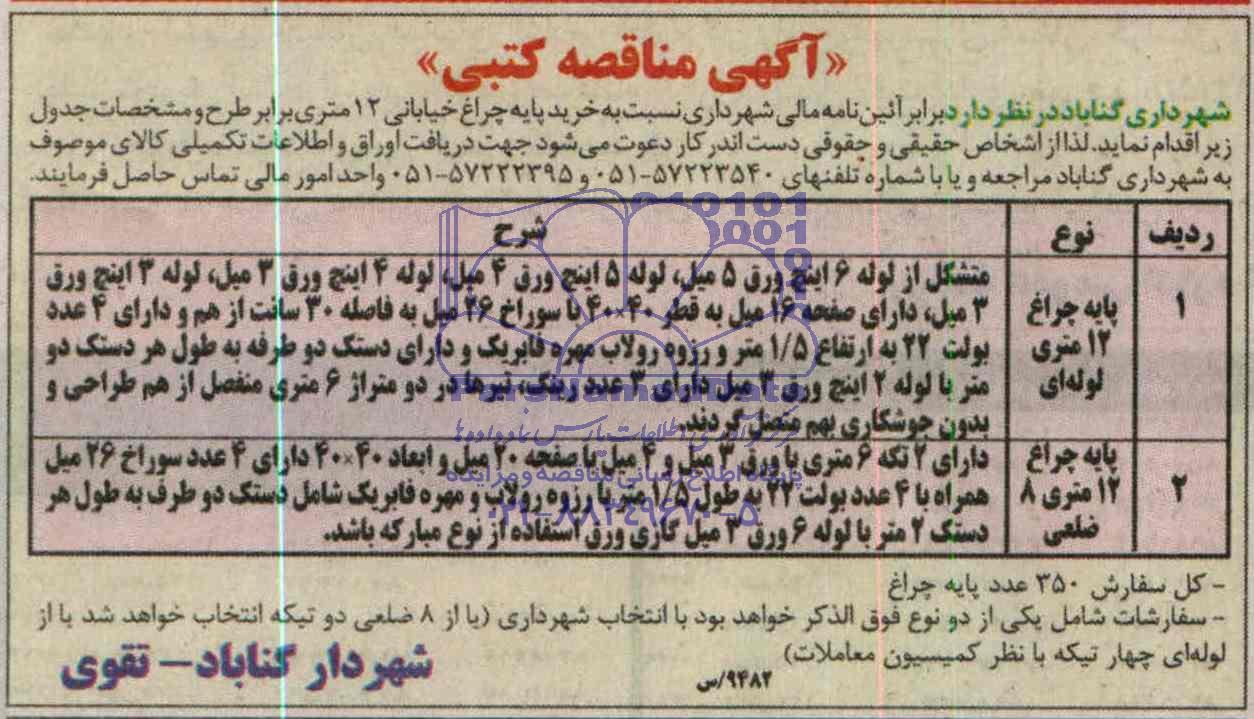 «آگهی مناقصه کتبی»
شهرداری گناباد در نظر دارد برابر آئین نامه مالی شهرداری نسبت به خرید پایه چراغ خیابانی ۱۲ متری برابر طرح و مشخصات جدول
زیر اقدام نماید. لذا از اشخاص حقیقی و حقوقی دست اندر کار دعوت می شود جهت دریافت اوراق و اطلاعات تکمیلی کالای موصوف
به شهرداری گناباد مراجعه و یا با شماره تلفنهای ۵۷۲۲۳۵۴۰-۰۵۱ و ۵۷۲۲۲۳۹۵-۰۵۱ واحد امور مالی تماس حاصل فرمایند.
ردیف نوع شرح
۱
پایه چراغ
۱۲ متری
لوله‌ای
متشکل از لوله ۶ اینچ ورق ۵ میل، لوله ۵ اینچ ورق ۴ میل، لوله ۴ اینچ ورق ۳ میل، لوله ۳ اینچ ورق
۳ میل، دارای صفحه ۱۶ میل به قطر ۴۰×۴۰ با سوراخ ۲۶ میل به فاصله ۳۰ سانت از هم و دارای ۴ عدد
بولت ۲۲ به ارتفاع ۱/۵ متر و رزوه رولاب مهره فابریک و دارای دستک دو طرفه به طول هر دستک دو
متر با لوله ۲ اینچ ورق ۳ میل دارای ۳ عدد رینگ، تیرها در دو متراژ ۶ متری منفصل از هم طراحی و
بدون جوشکاری بهم متصل گردند.
۲
پایه چراغ
۱۲ متری ۸
ضلعی
دارای ۲ تکه ۶ متری با ورق ۳ میل و ۴ میل با صفحه ۲۰ میل و ابعاد ۴۰×۴۰ دارای ۴ عدد سوراخ ۲۶ میل
همراه با ۴ عدد بولت ۲۲ به طول ۱/۵ متر با رزوه رولاب و مهره فابریک شامل دستک دو طرف به طول هر
دستک ۲ متر با لوله ۶ ورق ۳ میل گاری ورق استفاده از نوع مبارکه باشد.
- کل سفارش ۳۵۰ عدد پایه چراغ
- سفارشات شامل یکی از دو نوع فوق الذکر خواهد بود با انتخاب شهرداری (یا از ۸ ضلعی دو تیکه انتخاب خواهد شد یا از
لوله‌ای چهار تیکه با نظر کمیسیون معاملات)
شهردار گناباد - تقوی
۹۴۸۲/س
پایگاه اطلاع رسانی مناقصه و مزایده
۰۲۱-۸۸۳۴۹۶۷۰-۵